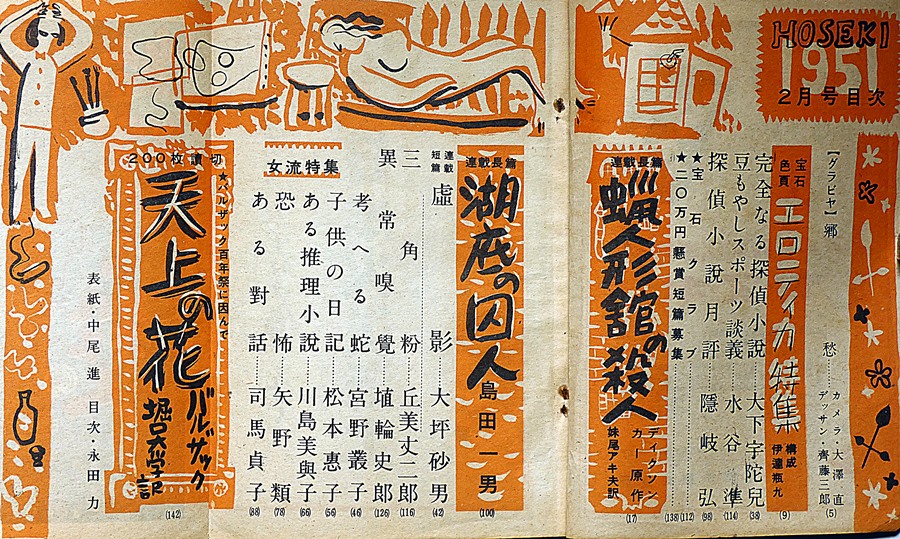 HOSEKI
1951
2月号目次
【グラビヤ】郷愁 カメラ・大澤直 デッサン・齊藤三郎 (5)
宝石色頁 エロティカ特集 構成 伊達瓶九 (9)
完全なる探偵小説 大下宇陀兒 (38)
豆もやしスポーツ談義 水谷準 (114)
探偵小説月評 隱岐弘 (98)
★宝石クラブ (112)
★二〇万円懸賞短篇募集 (138)
連載長篇 蝋人形館の殺人 ディクソン カー原作 妹尾アキ夫訳 (17)
連載長篇 湖底の囚人 島田一男 (100)
連載短篇 虚影 大坪砂男 (42)
三角粉 丘美丈二郎 (116)
異常嗅覺 埴輪史郎 (126)
考へる蛇 宮野叢子 (46)
子供の日記 松本惠子 (56)
ある推理小説 川島美與子 (66)
恐怖 矢野類 (78)
ある對話 司馬貞子 (88)
女流特集
200枚讀切
★バルザック百年祭に因んで
天上の花 バルザック 堀大學記 (142)
表紙・中尾進 目次・永田力